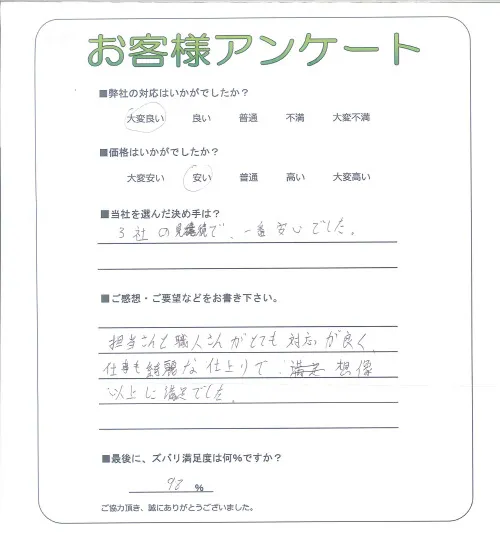 お客様アンケート
■弊社の対応はいかがでしたか？
大変良い 良い 普通 不満 大変不満
■価格はいかがでしたか？
大変安い 安い 普通 高い 大変高い
■当社を選んだ決め手は？
3社の見積績で、一番安いでした。
■ご感想・ご要望などをお書き下さい。
担当さんも職人さんがとても対応が良く、
仕事も綺麗な仕上りで 満足 想像
以上に満足でした。
■最後に、ズバリ満足度は何％ですか？
92 ％
ご協力頂き、誠にありがとうございました。